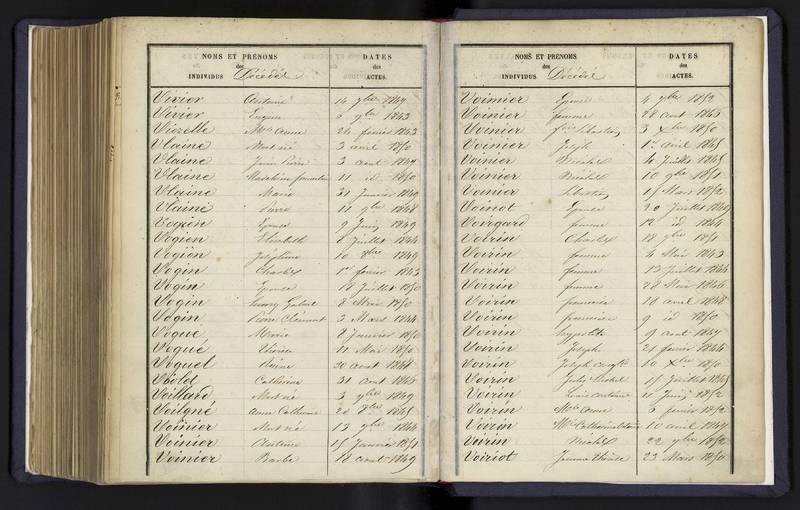 NOMS ET PRÉNOMS
des
INDIVIDUS Décédés
DATES
des
ACTES.
Vivier Antoine 14 9bre 1847
Vivier Eugène 9bre 1843
Vizelle Mie Anne 24 février 1843
Vlaine Mort né 3 avril 1850
Vlaine Jean Pierre 3 aout 1847
Vlaine Madeleine 11 id 1850
Vlaine Marie 31 Janvier 1849
Vlaine Pierre 11 9bre 1848
Vogien Epouse 9 Juin 1849
Vogien Elisabeth Juillet 1844
Vogien Joséphine 10 8bre 1849
Vogin Charles 1er février 1843
Vogin Epouse 18 Juillet 1850
Vogin 8 Mai 1850
Vogin Pierre Clément 3 Mars 1844
Vogué Marie 8 Janvier 1850
Vogué Thérèse 11 Mai 1850
Voguel Reine 20 aout 1848
Catherine 31 aout 1845
Voillard Mort né 3 9bre 1849
Voilgné Anne Catherine 28 8bre 1845
Voinier Mort né 13 9bre 1844
Voinier Antoine 15 Janvier 1851
Voinier Barbe 18 aout 1849
NOMS ET PRÉNOMS
des
INDIVIDUS Décédés
DATES
des
ACTES.
Voinier Epouse 4 9bre 1852
Voinier femme 28 aout 1843
Voinier Sébastien 3 Xbre 1850
Voinier Joseph 1er avril 1845
Voinier Michel 4 Juillet 1845
Voinier 10 9bre 1851
Voinier Sébastien 15 Mars 1852
Voinot Epouse 20 Juillet 1844
Voirgard femme 12 id 1844
Voirin Charles 18 9bre 1850
Voirin femme 4 Mai 1843
Voirin femme 13 Juillet 1844
Voirin femme 28 Mai 1846
Voirin françois 18 avril 1848
Voirin 9 id 1850
Voirin hyppolite 9 aout 1847
Voirin Joseph 21 février 1844
Voirin Joseph 10 Xbre 1850
Voirin Jules Michel 15 Juillet 1845
Voirin Louis Antoine 11 Juin 1852
Voirin Mie Anne 6 février 1852
Voirin Mie Catherine 10 avril 1847
Voirin Michel 22 9bre 1852
Voiriot Jeanne Thérèse 23 Mars 1850